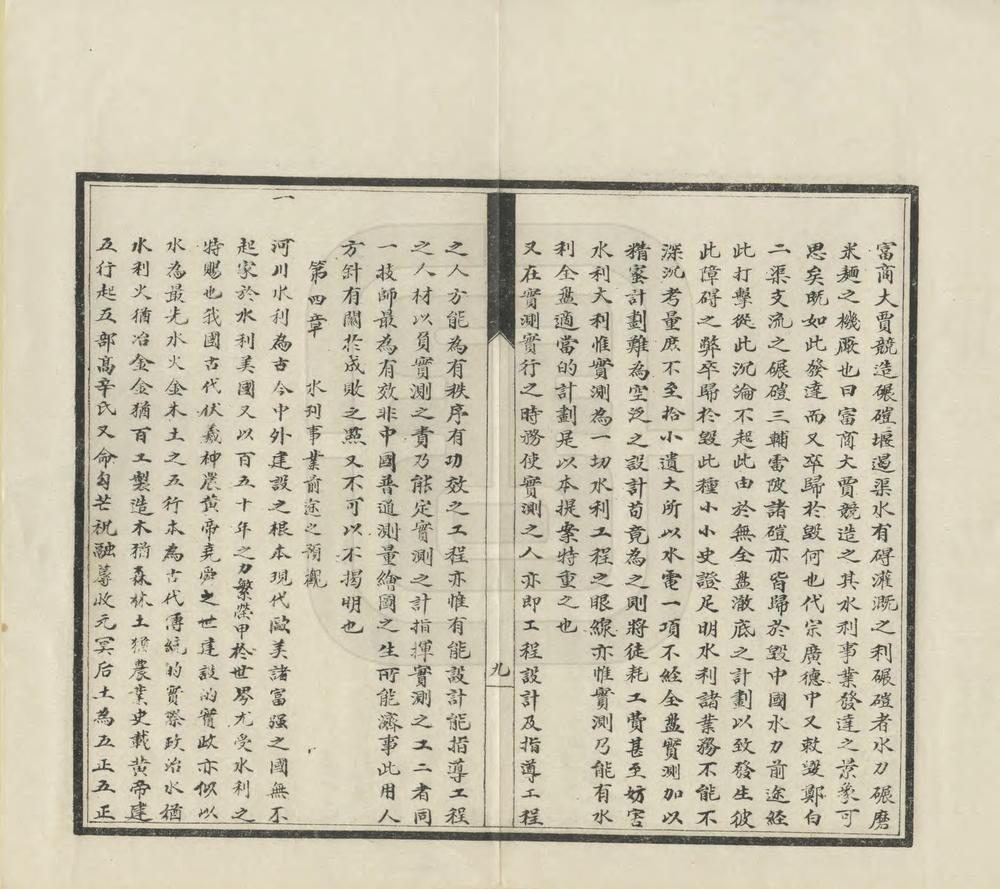 富商大賈競造碾磑堰遏渠水有碍灌溉之利碾磑者水力碾磨
米麵之機厰也曰富商大賈競造之其水利事業發達之景象可
思矣既如此發達而又卒歸於毀何也代宗廣德中又敕毀鄭白
二渠支流之碾磑三輔雷陂諸磑亦皆歸於毀中國水力前途經
此打擊從此沉淪不起此由於無全盤澈底之計劃以致發生彼
此障碍之弊卒歸於毀此種小小史證足明水利諸業務不能不
深沉考量庶不至拾小遺大所以水電一項不經全盤實測加以
精密計劃難為空泛之設計苟竟為之則將徒耗工費甚至妨害
水利大利惟實測為一切水利工程之眼線亦惟實測乃能有水
利全盤適當的計劃是以本提案特重之也
又在實測實行之時務使實測之人亦即工程設計及指導工程
九
之人方能為有秩序有功效之工程亦惟有能設計能指導工程
之人材以負實測之責乃能定實測之計指揮實測之工二者同
一技師最為有效非中國普通測量繪圖之生所能濟事此用人
方針有關於成敗之點又不可以不揭明也
第四章 水利事業前途之預觀
一 河川水利為古今中外建設之根本現代歐美諸富强之國無不
起家於水利美國又以百五十年之力繁榮甲於世界尤受水利之
特賜也我國古代伏羲神農黃帝堯舜之世建設的實政亦似以
水為最先水火金木土之五行本為古代傳統的實際政治水猶
水利火猶冶金金猶百工製造木猶森林土猶農業史載黃帝建
五行起五部高辛氏又命勾芒祝融蓐收元冥后土為五正五正